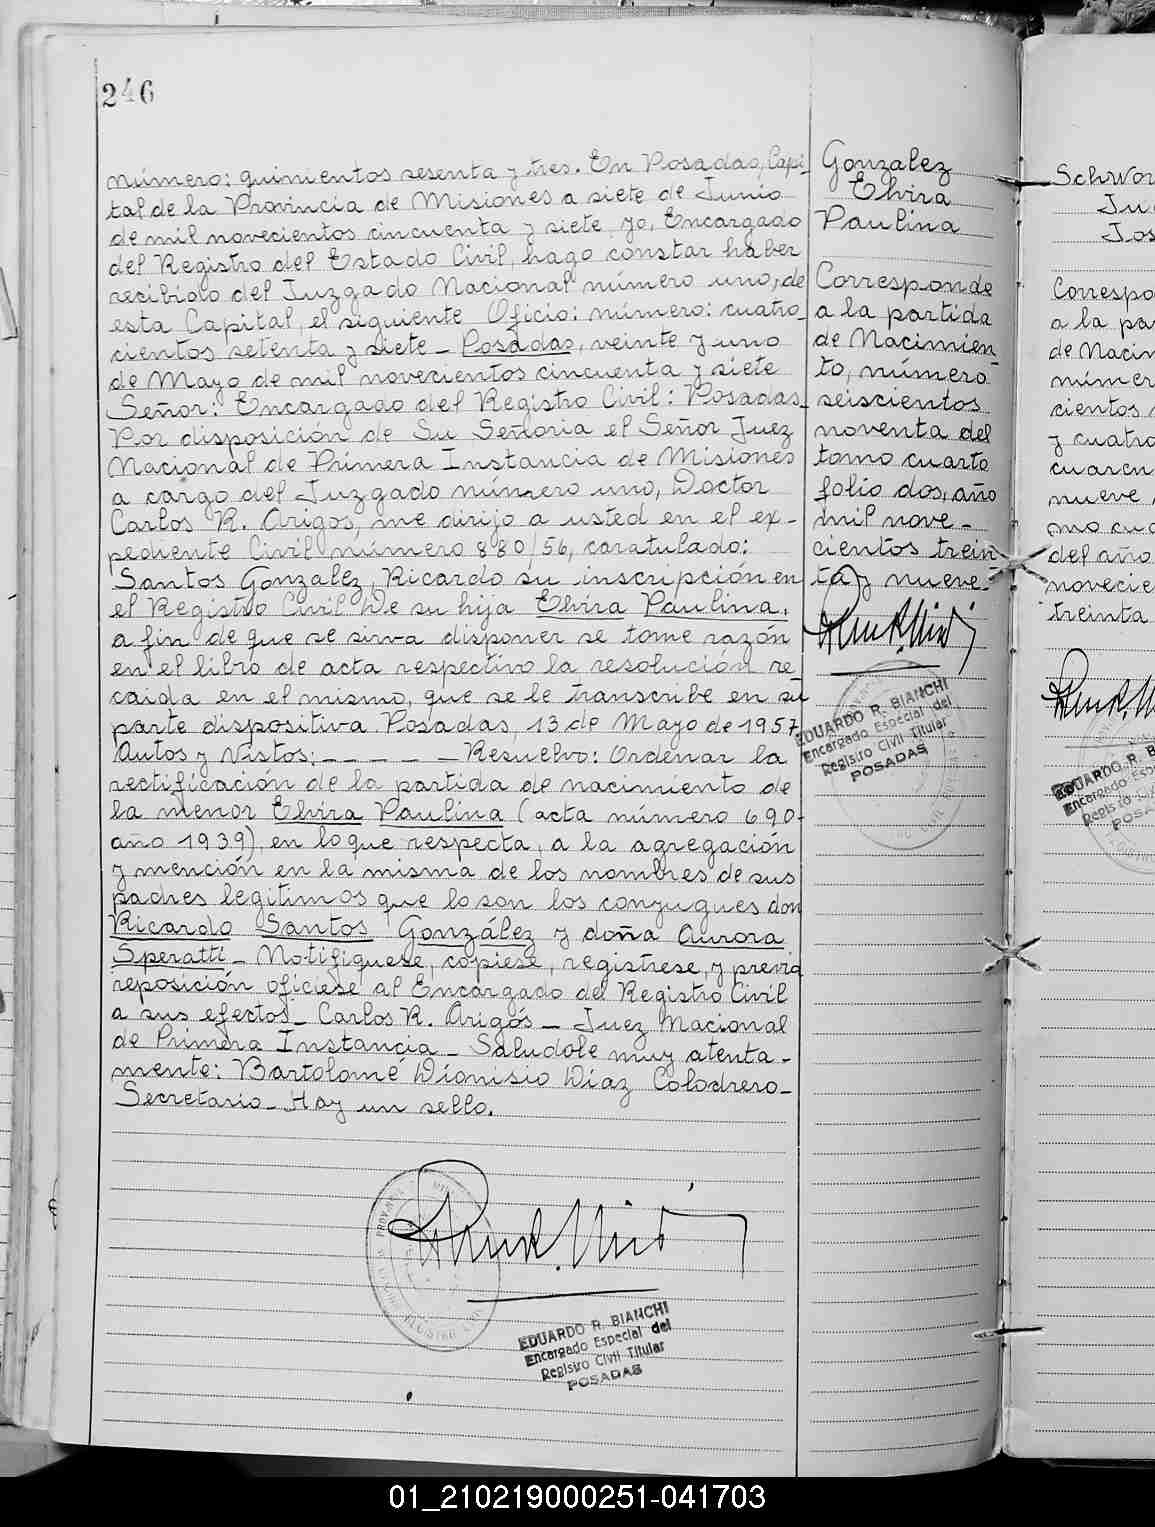 246
número: quinientos sesenta y tres. En Posadas, Capi-
tal de la Provincia de Misiones a siete de Junio
de mil novecientos cincuenta y siete, yo, Encargado
del Registro del Estado Civil, hago constar haber
recibido del Juzgado Nacional número uno, de
esta Capital, el siguiente Oficio: número: cuatro-
cientos setenta y siete - Posadas, veinte y uno
de Mayo de mil novecientos cincuenta y siete
Señor: Encargado del Registro Civil: Posadas-
Por disposición de Su Señoria el Señor Juez
Nacional de Primera Instancia de Misiones
a cargo del Juzgado número uno, Doctor
Carlos R. Arigós, me dirijo a usted en el ex-
pediente Civil número 880/56, caratulado:
Santos Gonzalez, Ricardo su inscripción en
el Registro Civil De su hija Elvira Paulina,
a fin de que se sirva disponer se tome razón
en el libro de acta respectivo la resolución re
caida en el mismo, que se le transcribe en su
parte dispositiva. Posadas, 13 de Mayo de 1957
Autos y Vistos: - - - - - Resuelvo: Ordenar la
rectificación de la partida de nacimiento de
la menor Elvira Paulina (acta número 690-
año 1939), en lo que respecta, a la agregación
y mención en la misma de los nombres de sus
padres legítimos que lo son los conyugues don
Ricardo Santos González y doña Aurora
Speratti - Notifiquese, copiese, registrese, y previa
reposición ofíciese al Encargado del Registro Civil
a sus efectos - Carlos R. Arigós - Juez Nacional
de Primera Instancia - Saludole muy atenta-
mente: Bartolomé Dionisio Diaz Colodrero -
Secretario - Hay un sello.
EDUARDO R. BIANCHI
Encargado Especial del
Registro Civil Titular
POSADAS
Gonzalez
Elvira
Paulina
Corresponde
a la partida
de Nacimien-
to, número
seiscientos
noventa del
tomo cuarto
folio dos, año
mil nove-
cientos trein
ta y nueve.
EDUARDO R. BIANCHI
Encargado Especial del
Registro Civil Titular
POSADAS
Correspo
a la pa
de Nacim
númer
cientos
y cuatro
cuaren
nueve
mo cua
del año
novecie
treinta
01_210219000251-041703